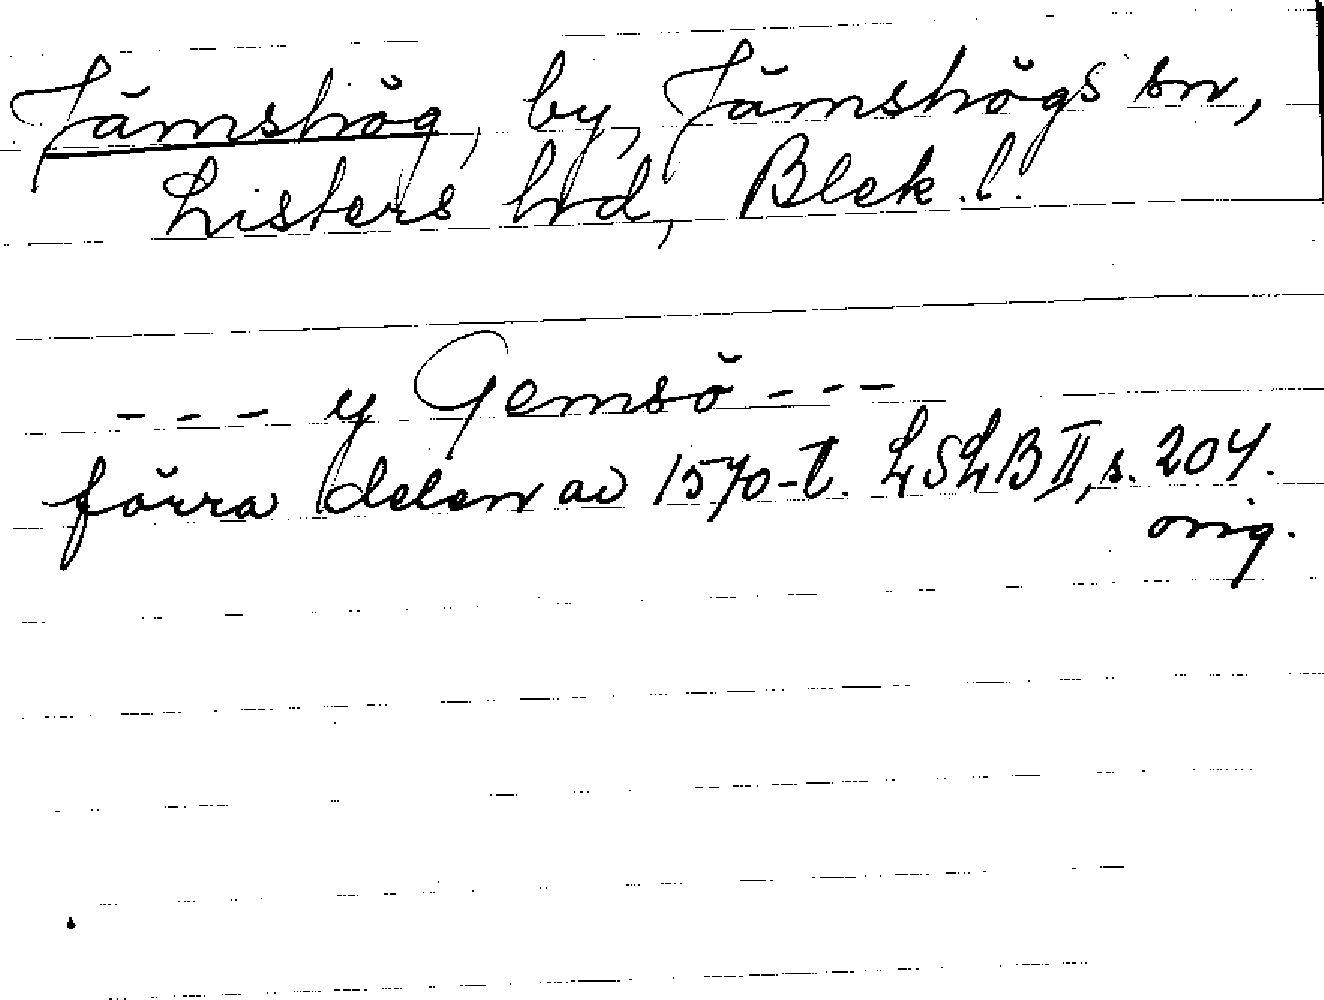 Jämshög, by, Jämshögs sn,
Listers hd, Blek. l.
--- y Gemsö ---
förra delen av 1570-t. LSLB II, s. 204.
orig.